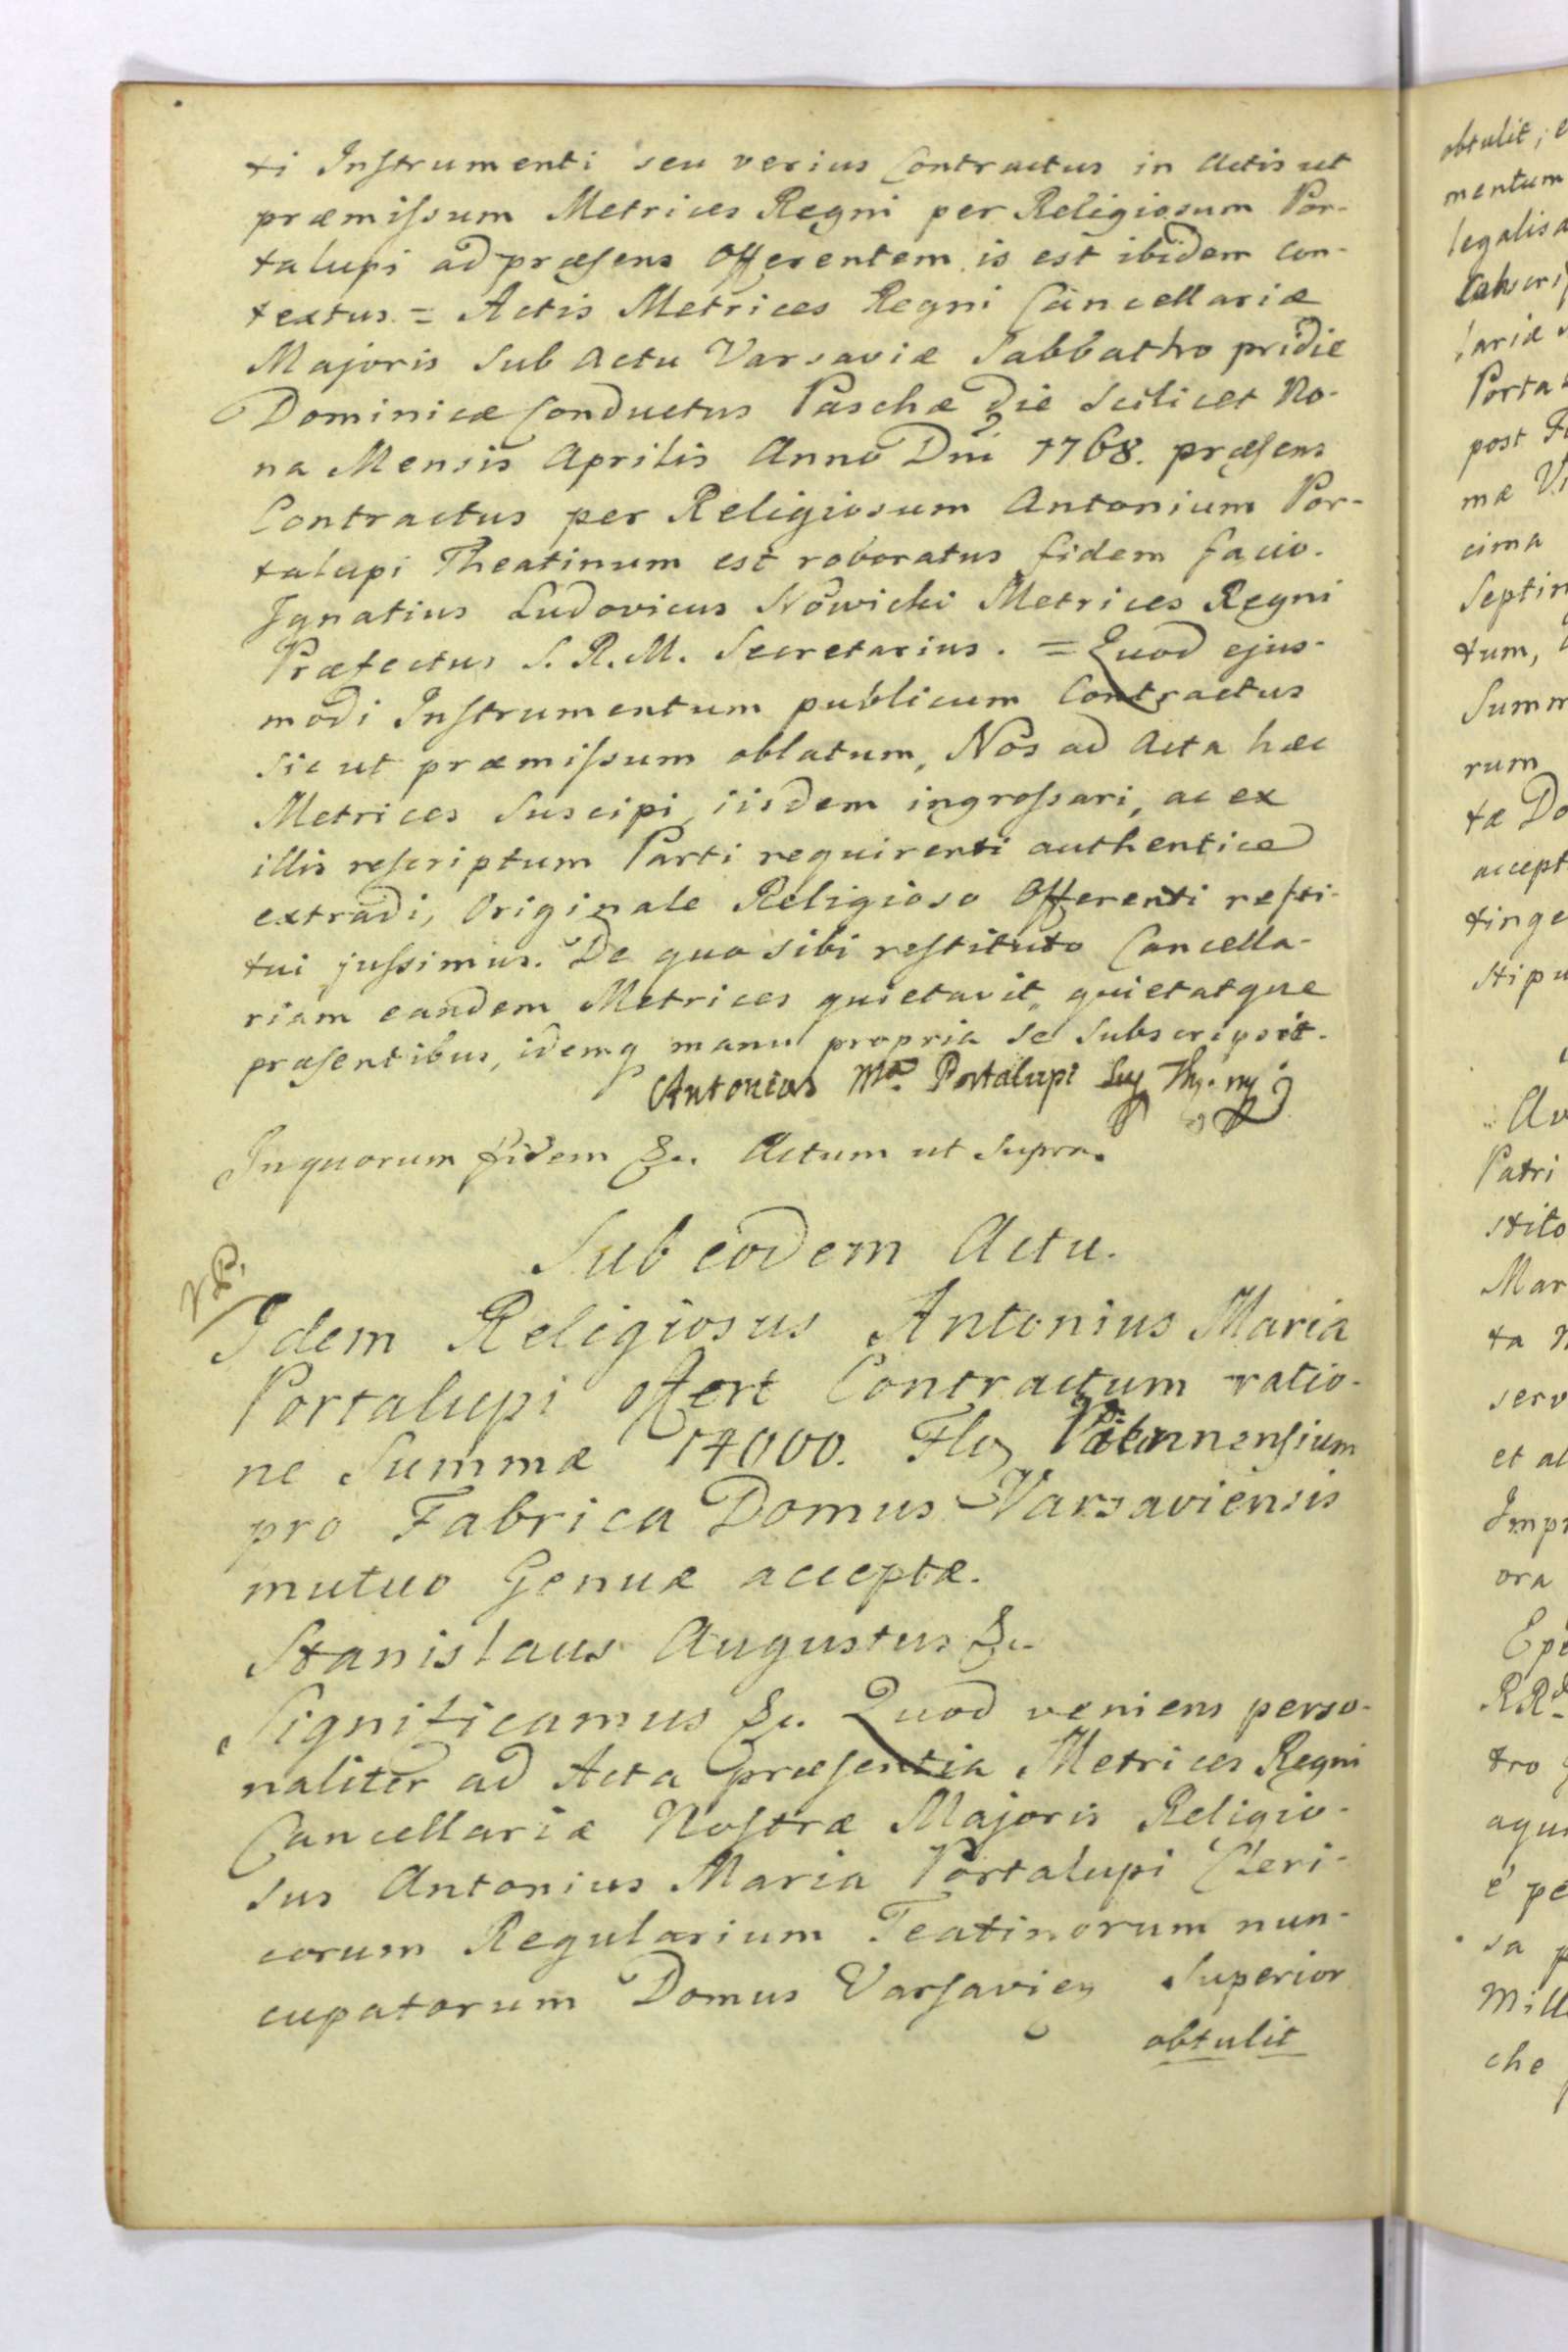 ti Instrumenti seu verius Contractus in Actis ut
præmissum Metrices Regni per Religiosum Por-
talupi ad præsens Offerentem is est ibidem con-
textus = Actis Metrices Regni Cancellariæ
Majoris sub Actu Varsaviæ Sabbatho pridie
Dominicæ Conductus Paschæ Die Scilicet No-
na Mensis Aprilis Anno Dni 1768. præsens
Contractus per Religiosum Antonium Por-
talupi Theatinum est roboratus fidem facio.
Ignatius Ludovicus Nowicki Metrices Regni
Præfectus S. R. M. Secretarius. = Quod ejus-
modi Instrumentum publicum Contractus
sic ut præmissum oblatum, Nos ad Acta hæc
Metrices Suscipi, iisdem ingrossari, ac ex
illis rescriptum Parti requirenti authentice
extradi, Originale Religioso Offerenti resti-
tui jussimus. De quo sibi restituto Cancella-
riam eandem Metrices quietavit, quietatque
præsentibus, idemq manu propria se Subscripsit.
Antonius Ma. Portalupi
In quorum fidem &c. Actum ut Supra.
Sub eodem Actu.
Idem Religiosus Antonius Maria
Portalupi offert Contractum ratio-
ne Summæ 14000. Flo
pro Fabrica Domus Varsaviensis
mutuo Genuæ acceptæ.
Stanislaus Augustus &c.
Significamus &c. Quod veniens perso-
naliter ad Acta præsentia Metrices Regni
Cancellariæ Nostræ Majoris Religio-
sus Antonius Maria Portalupi Cleri-
corum Regularium Teatinorum nun-
cupatorum Domus Varsavien Superior
obtulit
obtulit, e
mentum
legalisa
Porta
post
mæ
cima
Septin
tum,
Summ
rum
tæ Do
accept
tinge
stipu
Av
Patri
stito
Mar
ta
serv
et al
Impr
ora
Epi
RR
tro
agu
e pe
sa p
Mill
che